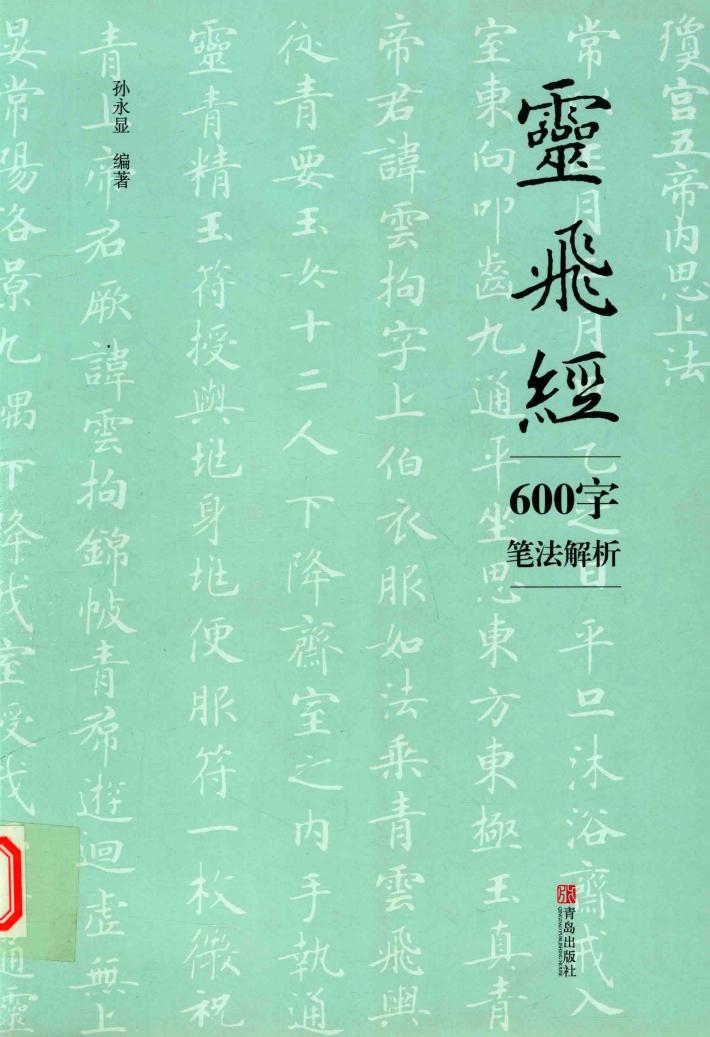 靈飛經
600字
笔法解析
孙永显 编著
青岛出版社
QINGDAO PUBLISHING HOUSE
瓊宫五帝内思上法
常月月乙之日平旦沐浴齋戒入
室東向叩齒九通平坐思東方東極玉真青
帝君諱雲拘字上伯衣服如法乘青雲飛輿
從青要玉女十二人下降齋室之内手執通
靈青精玉符授與垗身垗便服符一枚微祝
青上帝君厥諱雲拘錦帔青帬遊迴虛無上
晏常陽洛景九嵎下降我室授我通靈